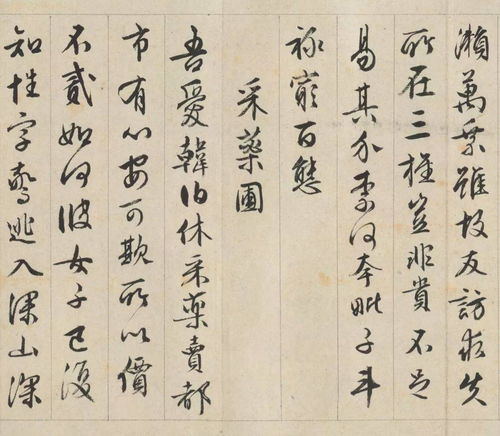 瀨萬乘雖故友訪求失
所在三旌豈非貴不足
易其介柰何夸毗子斗
祿窮百態
采藥圃
吾愛韓伯休采藥賣都
市有心安可欺所以價
不貳如何彼女子已復
知姓字驚逃入深山深